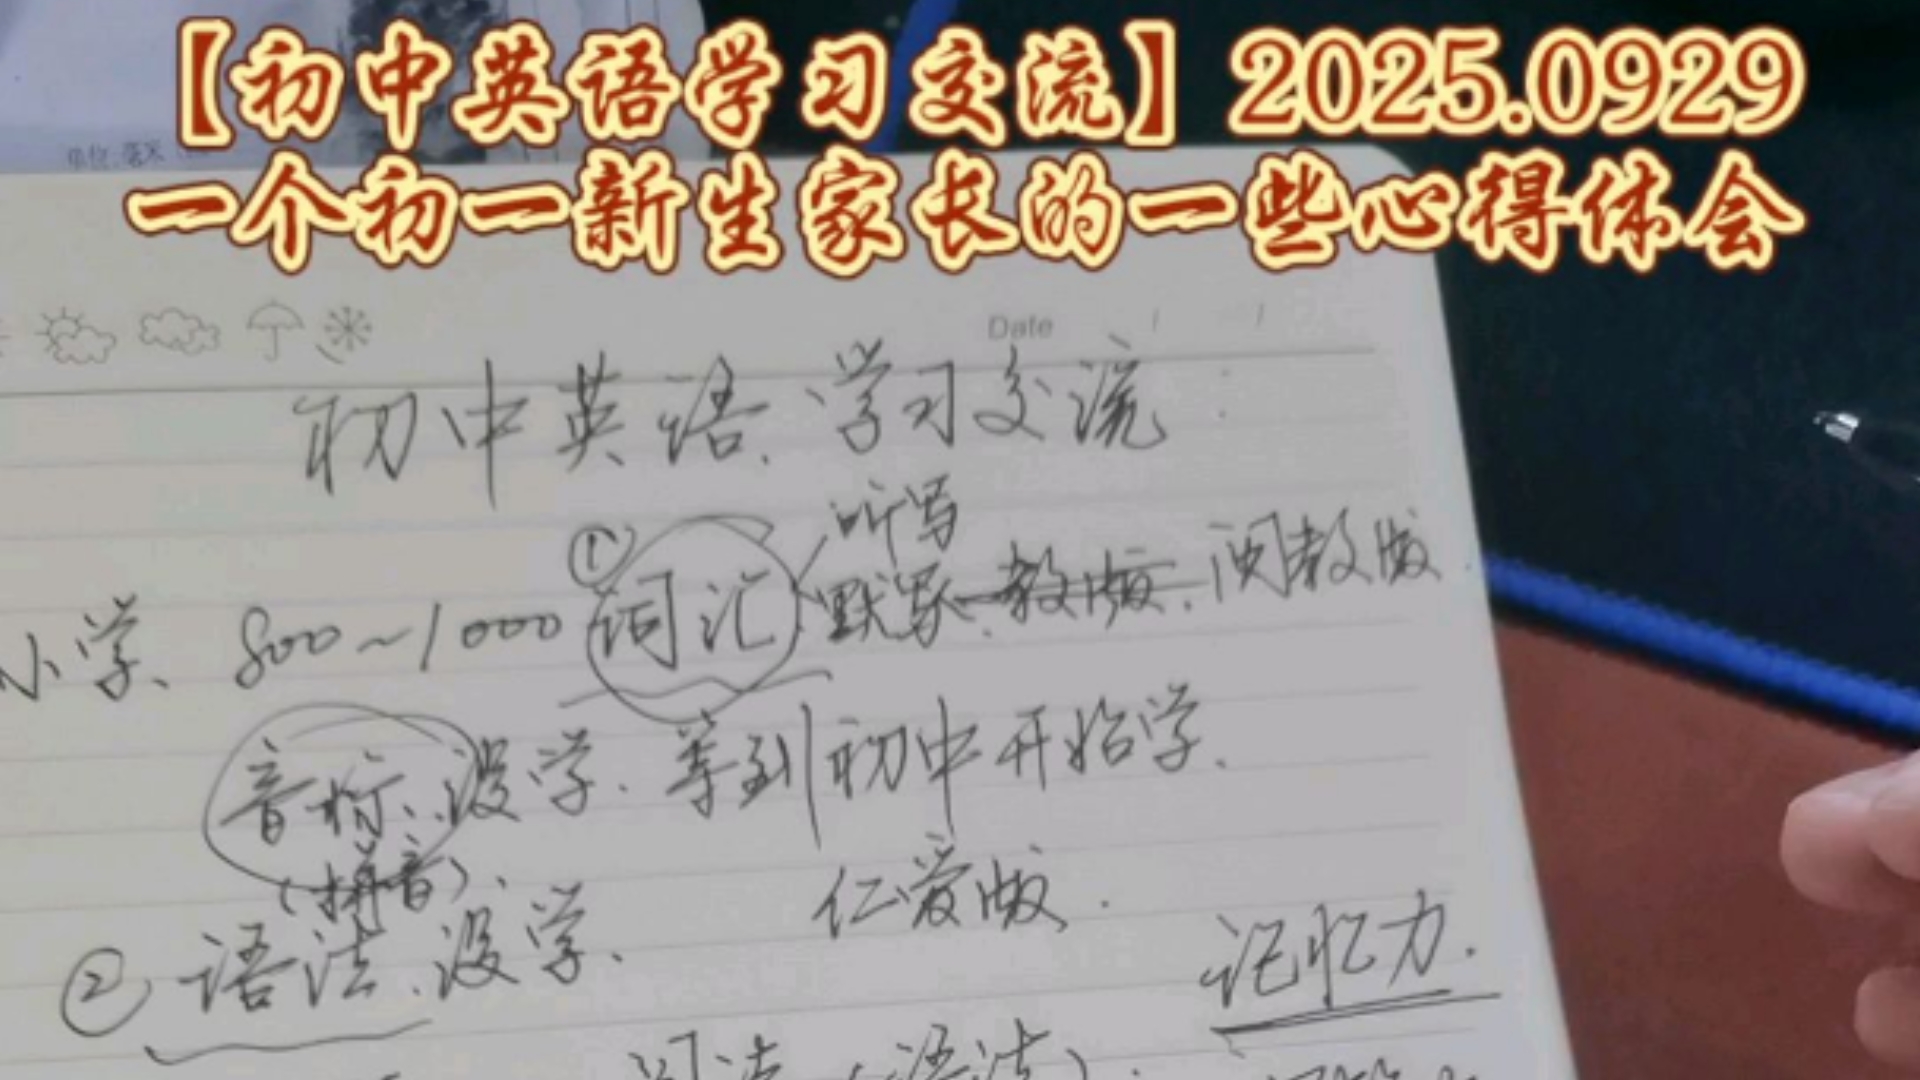 【初中英语学习交流】2025.0929
一个初一新生家长的一些心得体会
单位:毫米
Date / /
初中英语、学习交流：
听写
小学、800~1000 ①词汇 默写、教版、闽教版
音标、没学、等到初中开始学、
（拼音）、 仁爱版.
②语法、没学、 记忆力.
（语法）